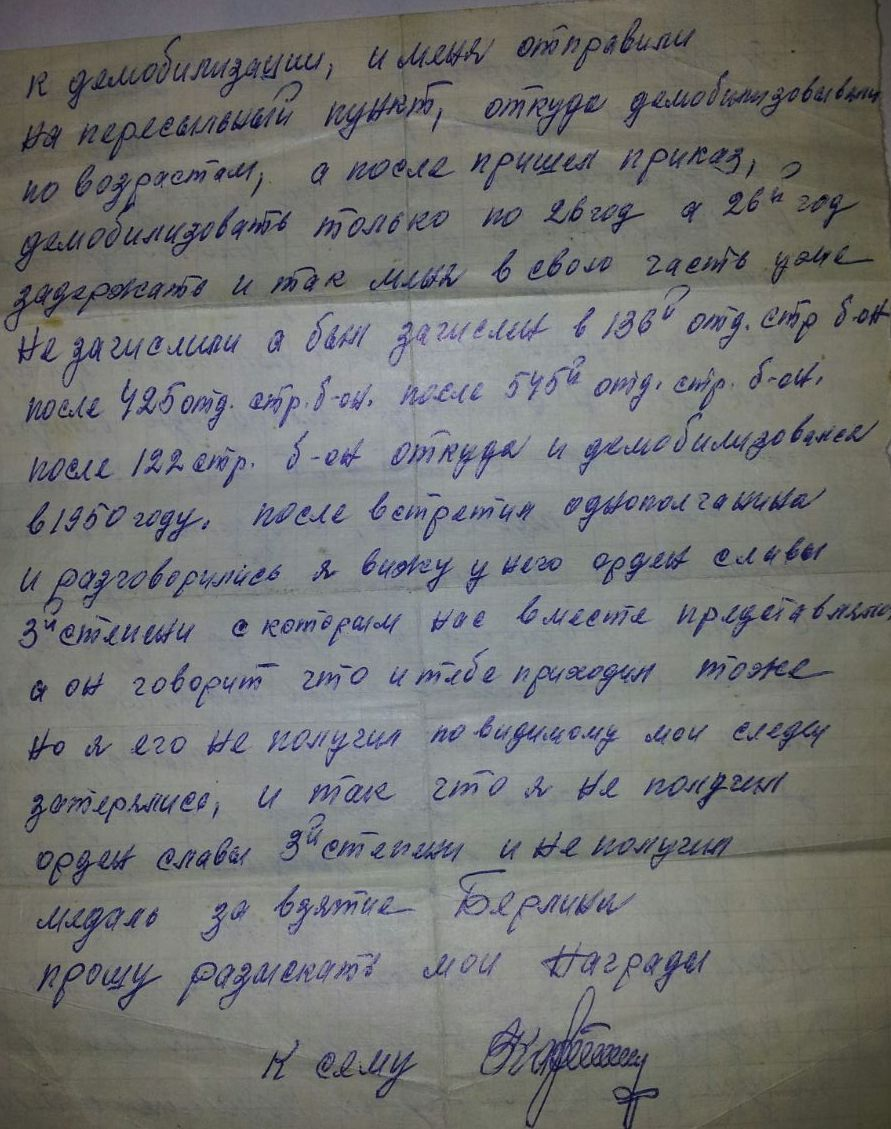 к демобилизации, и меня отправили
на пересыльный пункт, откуда демобилизовывали
по возрастам, а после пришел приказ,
демобилизовать только по 26 год а 26й год
задержать и так меня в свою часть уже
не зачислили а был зачислен в 136й отд. стр б-он
после 425 отд. стр. б-он. после 545й отд. стр. б-он.
после 122 стр. б-он откуда и демобилизовался
в 1950 году. после встретил однополчанина
и разговорились я вижу у него орден славы
3й степени с которым нас вместе представляли
а он говорит что и тебе приходил тоже
но я его не получил по видимому мои следы
затерялись, и так что я не получил
орден славы 3й степени и не получил
медаль за взятие Берлина
прошу разыскать мои награды
К сему